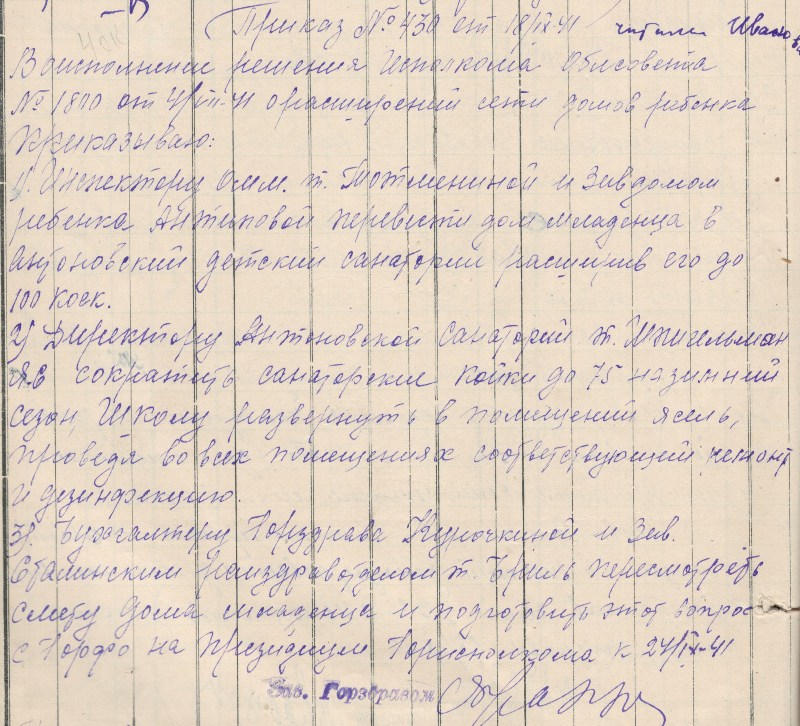 Приказ № 430 от 18/IX-41 читали Ивано
Воисполнении решения Исполкома Облсовета
№ 1800 от 4/VII-41 орасширений сети домов ребенка
приказываю:
1). Инспектору Омм. т. Тотмениной и Завдомом
ребенка Антиповой перевести дом младенца в
антоновский детский санаторий расширив его до
100 коек.
2) Директору Антоновской санаторий т. Шпигельман
сократить санаторские койки до 75 на зимний
сезон, Школу развернуть в помещений ясель,
проведя во всех помещениях соответствующий ремонт
и дезинфекцию.
3). Бухгалтеру Горздрава Курочкиной и Зав.
Сталинским райздравотделом т. Бриль пересмотреть
смету дома младенца и подготовить этот вопрос
с Горфо на президиум Горисполкома к 24/IX-41
Зав. Горздравом